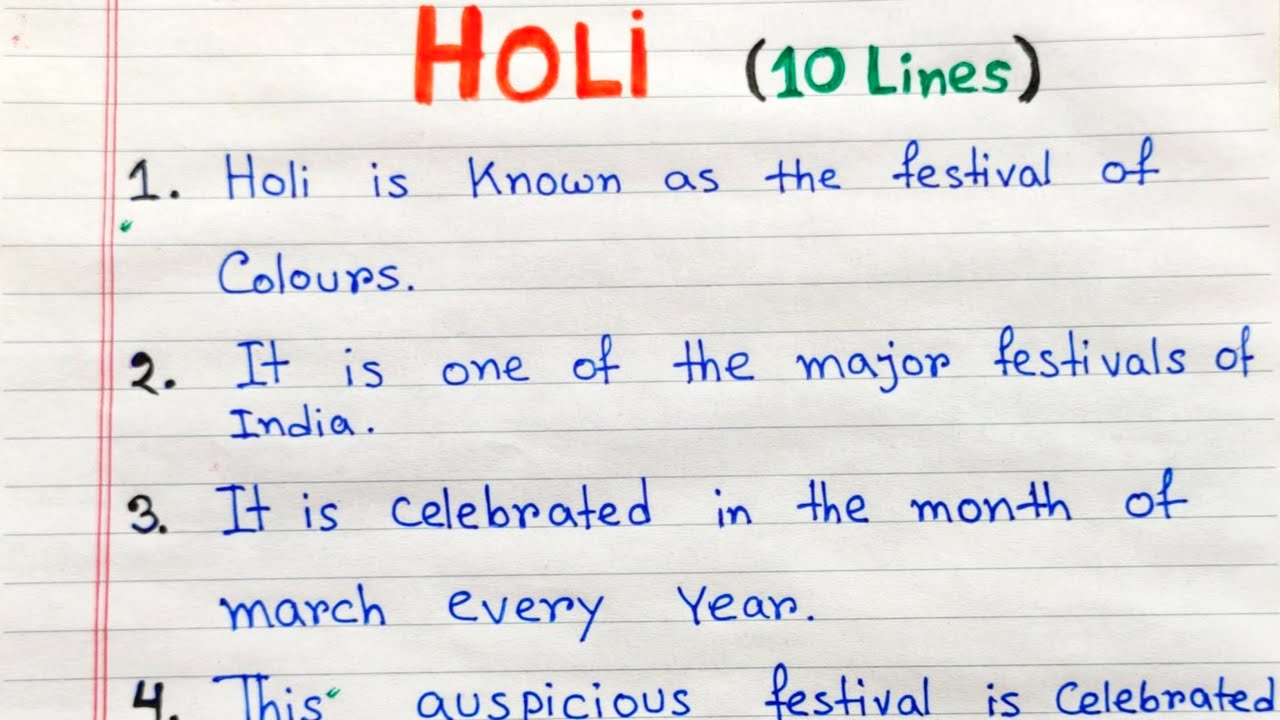 HOLi (10 Lines)
1. Holi is Known as the festival of
Colours.
2. It is one of the major festivals of
India.
3. It is celebrated in the month of
march every Year.
4. This auspicious festival is celebrated